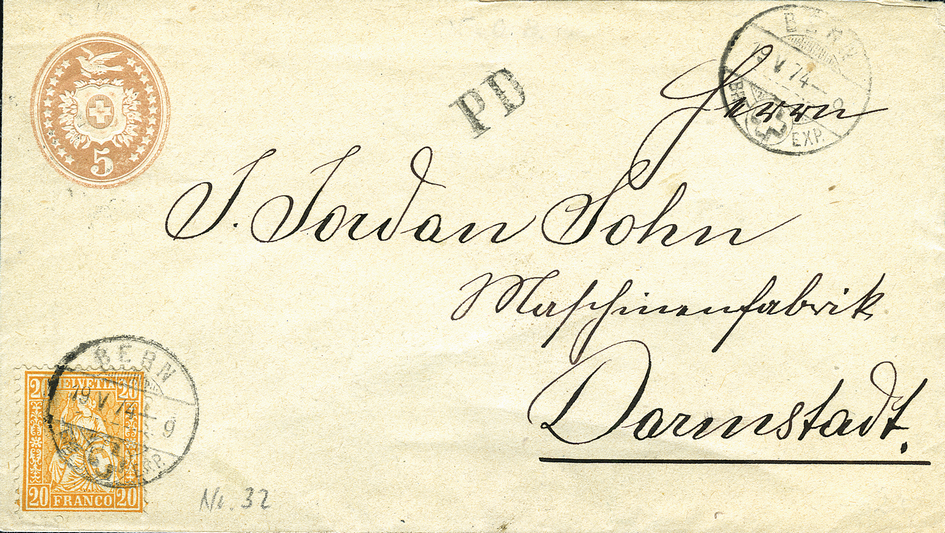 5
PD
BERN
19 V 74 — 9
EXP.
Herrn
J. Jordan Sohn
Maschinenfabrik
Darmstadt.
20 HELVETIA 20
20 FRANCO 20
BERN
19 V 74 — 9
EXP.
No. 32